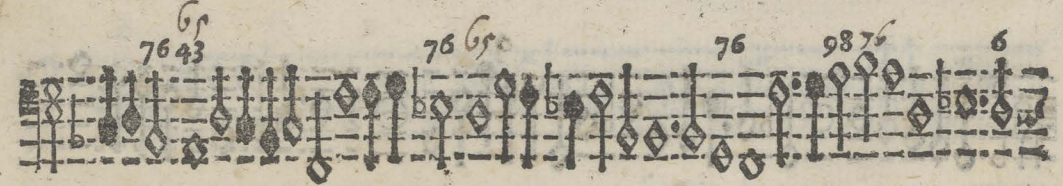 65
76 43 76 65 76 98 76 6